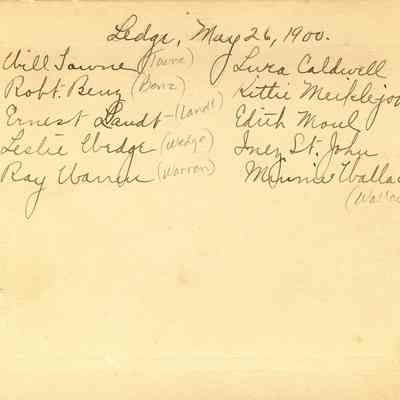 Ledge, May 26, 1900.
Will Towne (Towne) Lura Caldwell
Robt. Benz (Benz) Kittie Meiklejo
Ernest Landt - (Landt) Edith Moul
Leslie Wedge (Wedge) Inez St. John
Ray Warren (Warren) Minnie Walla
(Walla